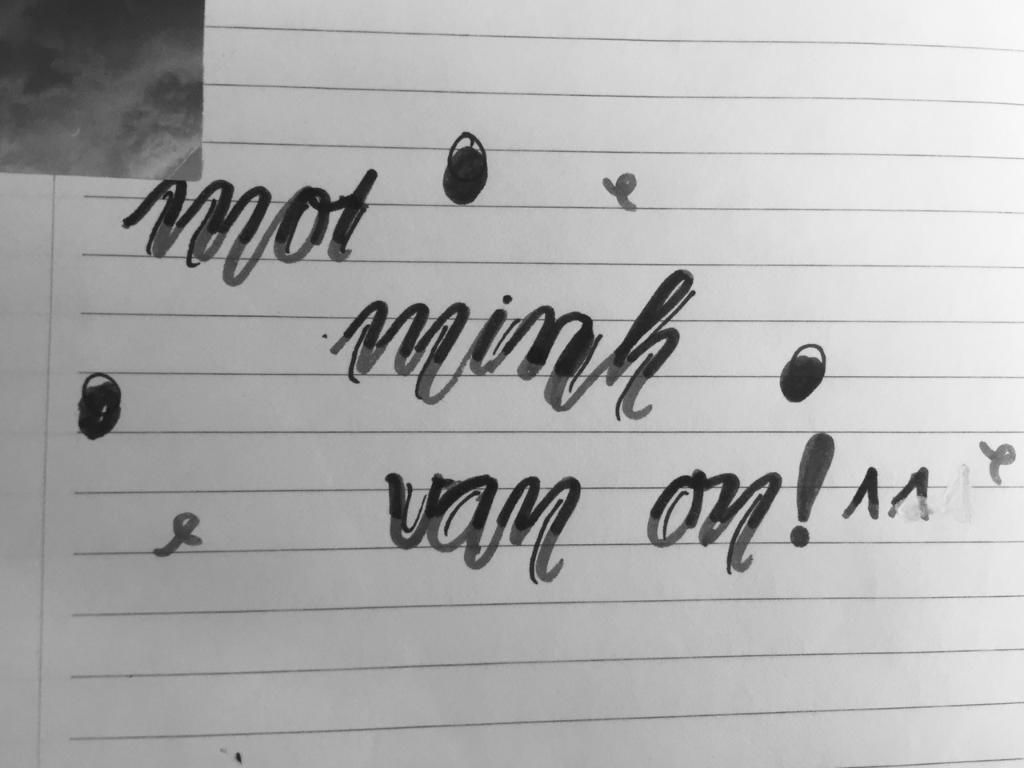 mot
minh
van on! 11